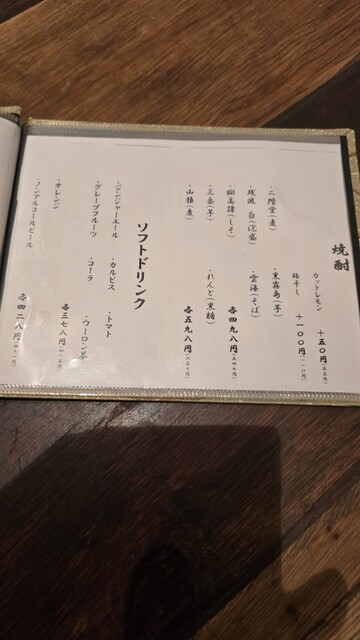 焼酎
カットレモン +五〇円(五五円)
梅干し +一〇〇円(一一〇円)
・二階堂(麦) ・黒霧島(芋)
・残波 白(泡盛) ・雲海(そば)
・鍛高譚(しそ) 各四九八円(五四七円)
・三岳(芋) ・れんと(黒糖)
・山猿(麦) 各五九八円(六五七円)
ソフトドリンク
・ジンジャーエール ・カルピス ・トマト
・グレープフルーツ ・コーラ ・ウーロン茶
・オレンジ 各三七八円(四一五円)
・ノンアルコールビール 各四二八円(四七一円)